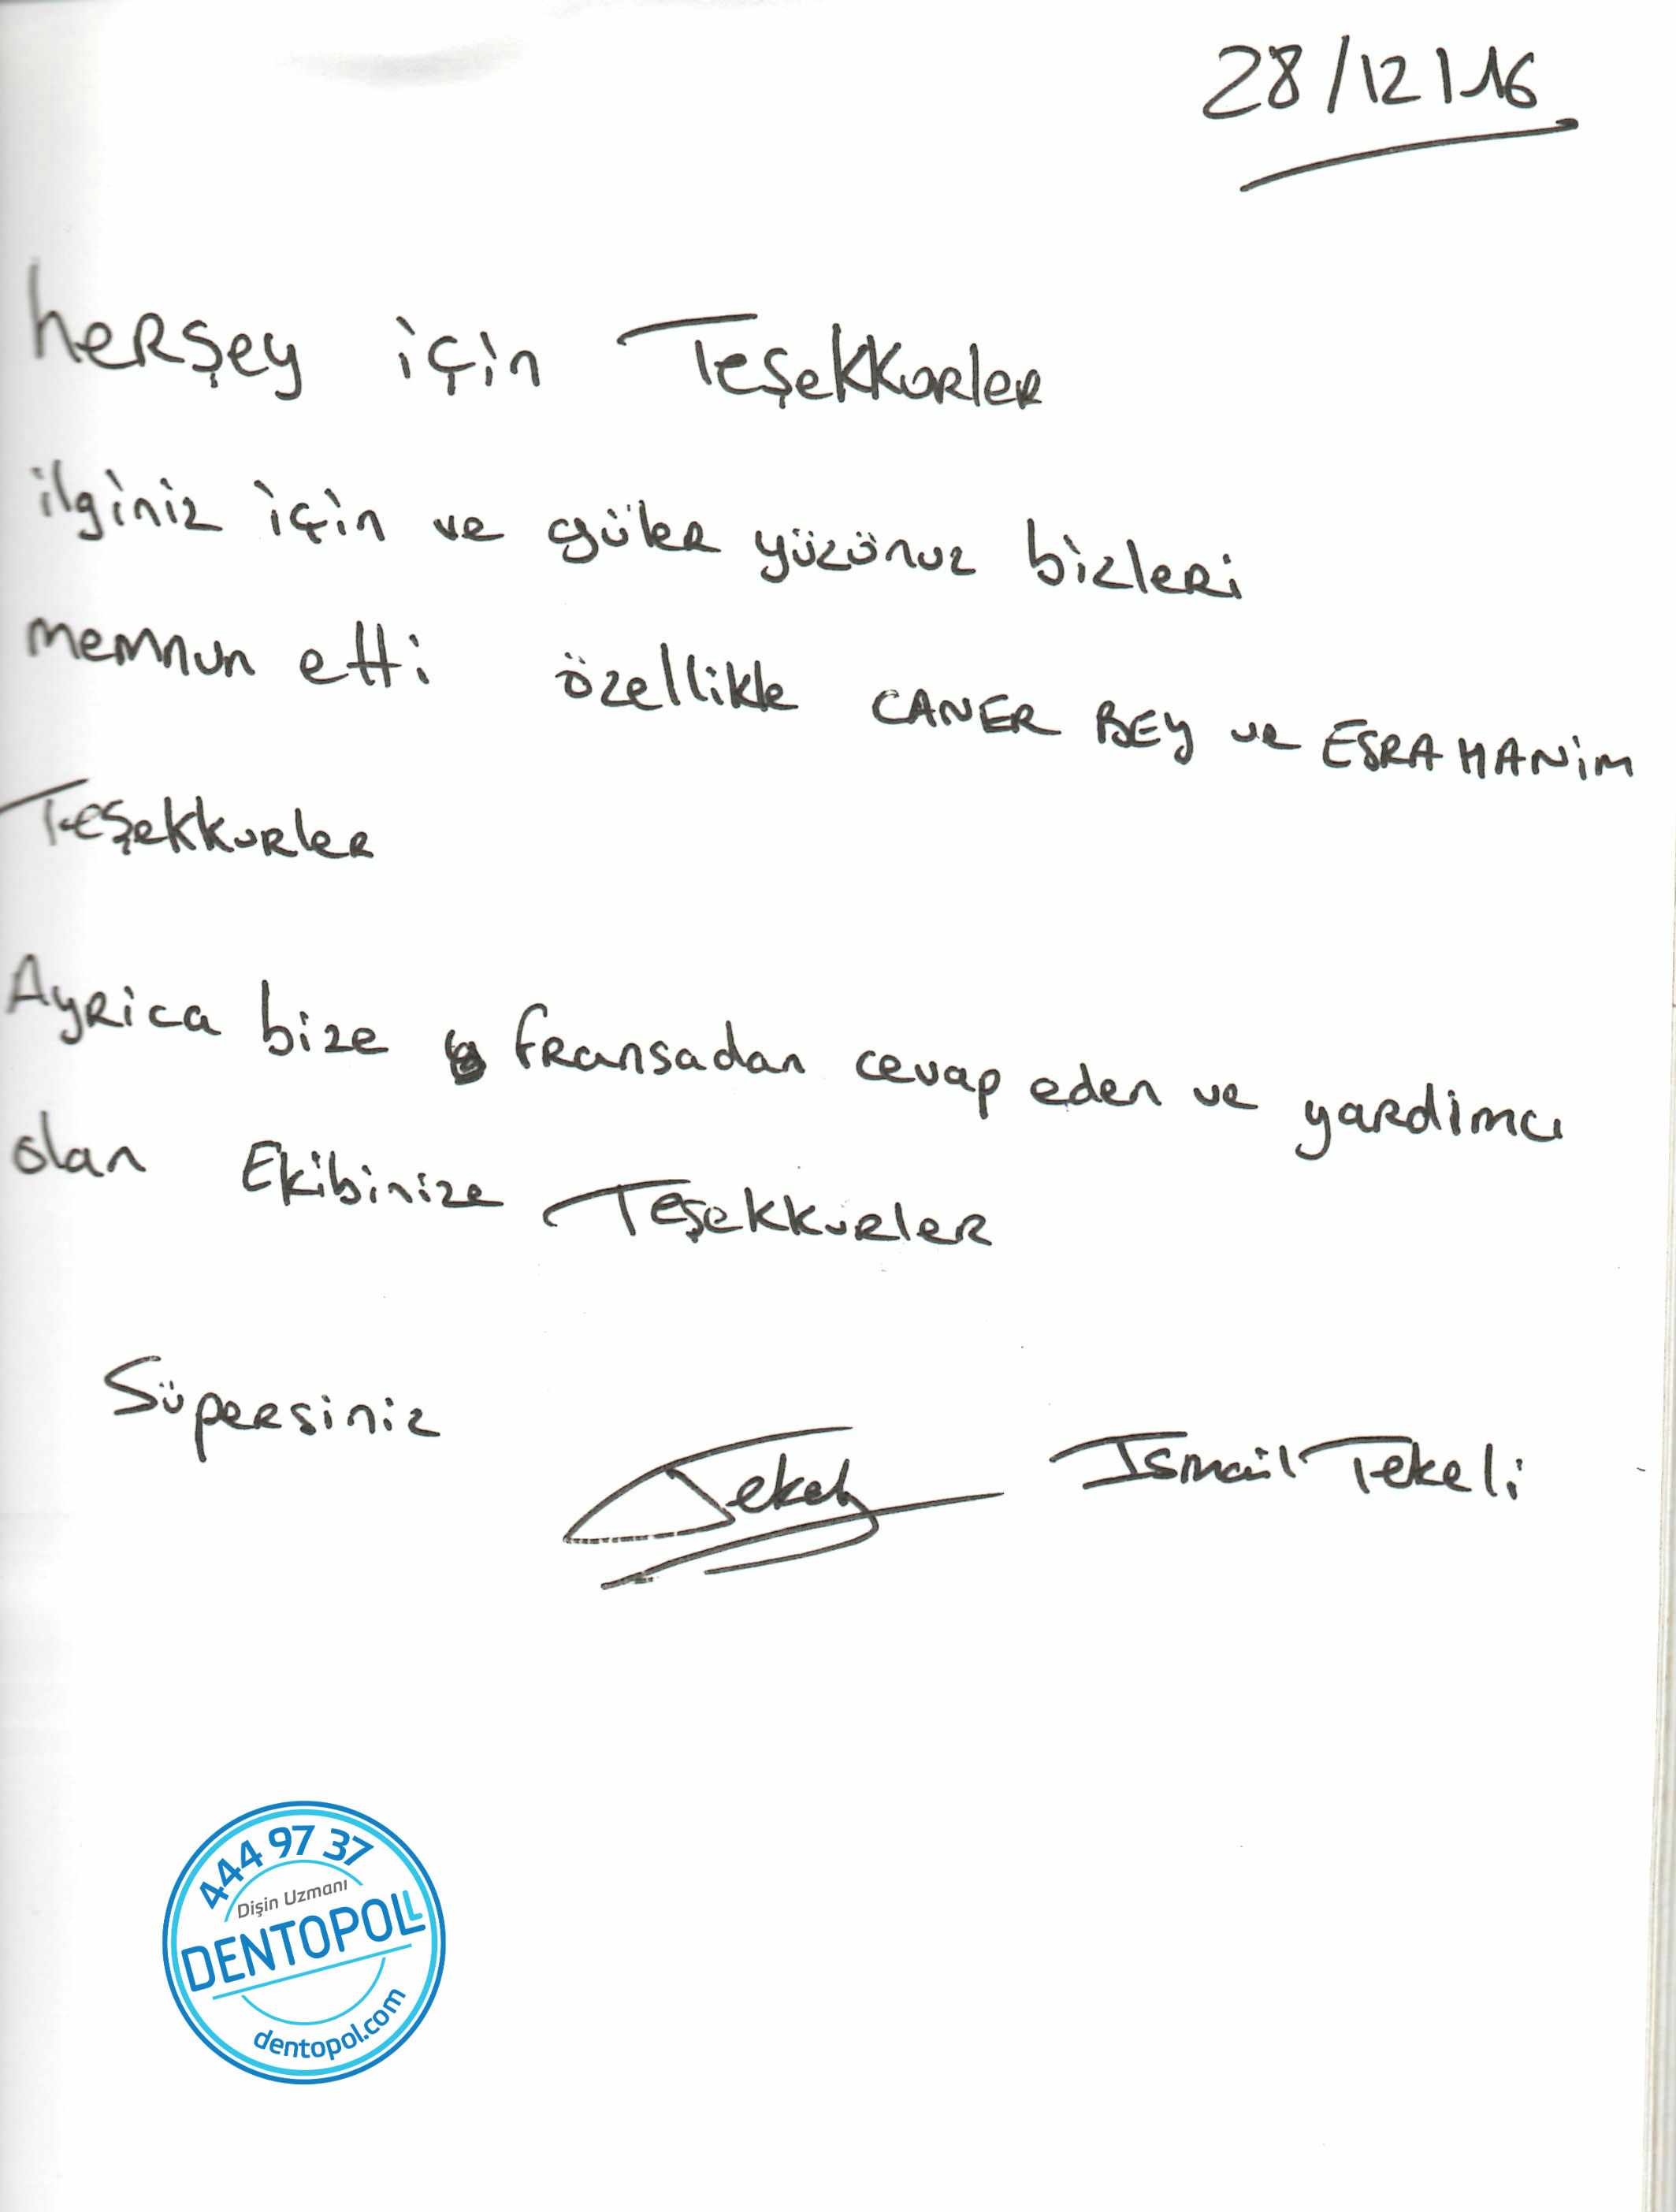 28/12/16
herşey için Teşekkurler
ilginiz için ve güler yüzünuz bizleri
memnun etti özellikle CANER BEY ve ESRA HANiM
Teşekkurler
Ayrica bize fransadan cevap eden ve yardimcı
olan Ekibinize Teşekkurler
Süpersiniz
Tekeli Ismail Tekeli
444 97 37
Dişin Uzmanı
DENTOPOLL
dentopol.com